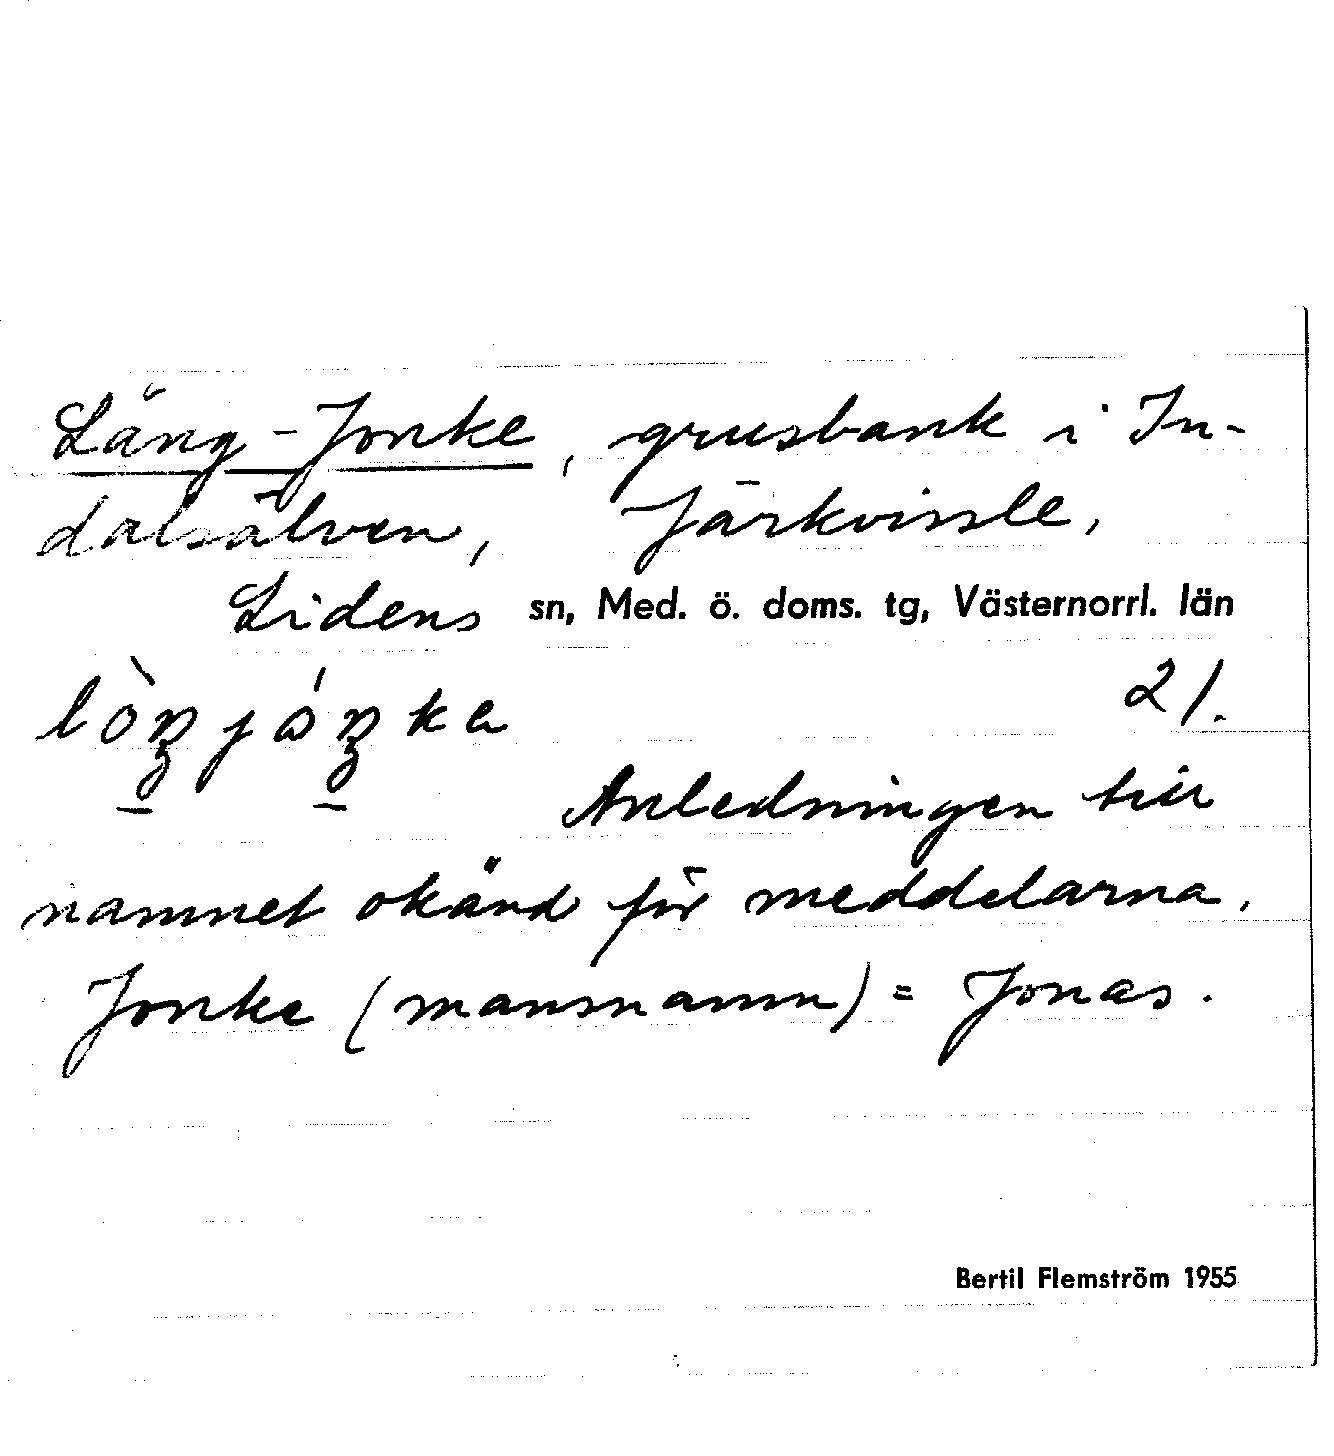 Lång-Jonke, grusbank i In-
dalsälven, Järkvissle,
Lidens sn, Med. ö. doms. tg, Västernorrl. län
21.
Anledningen till
namnet okänd för meddelarna.
Jonke (mansnamn) = Jonas.
Bertil Flemström 1955